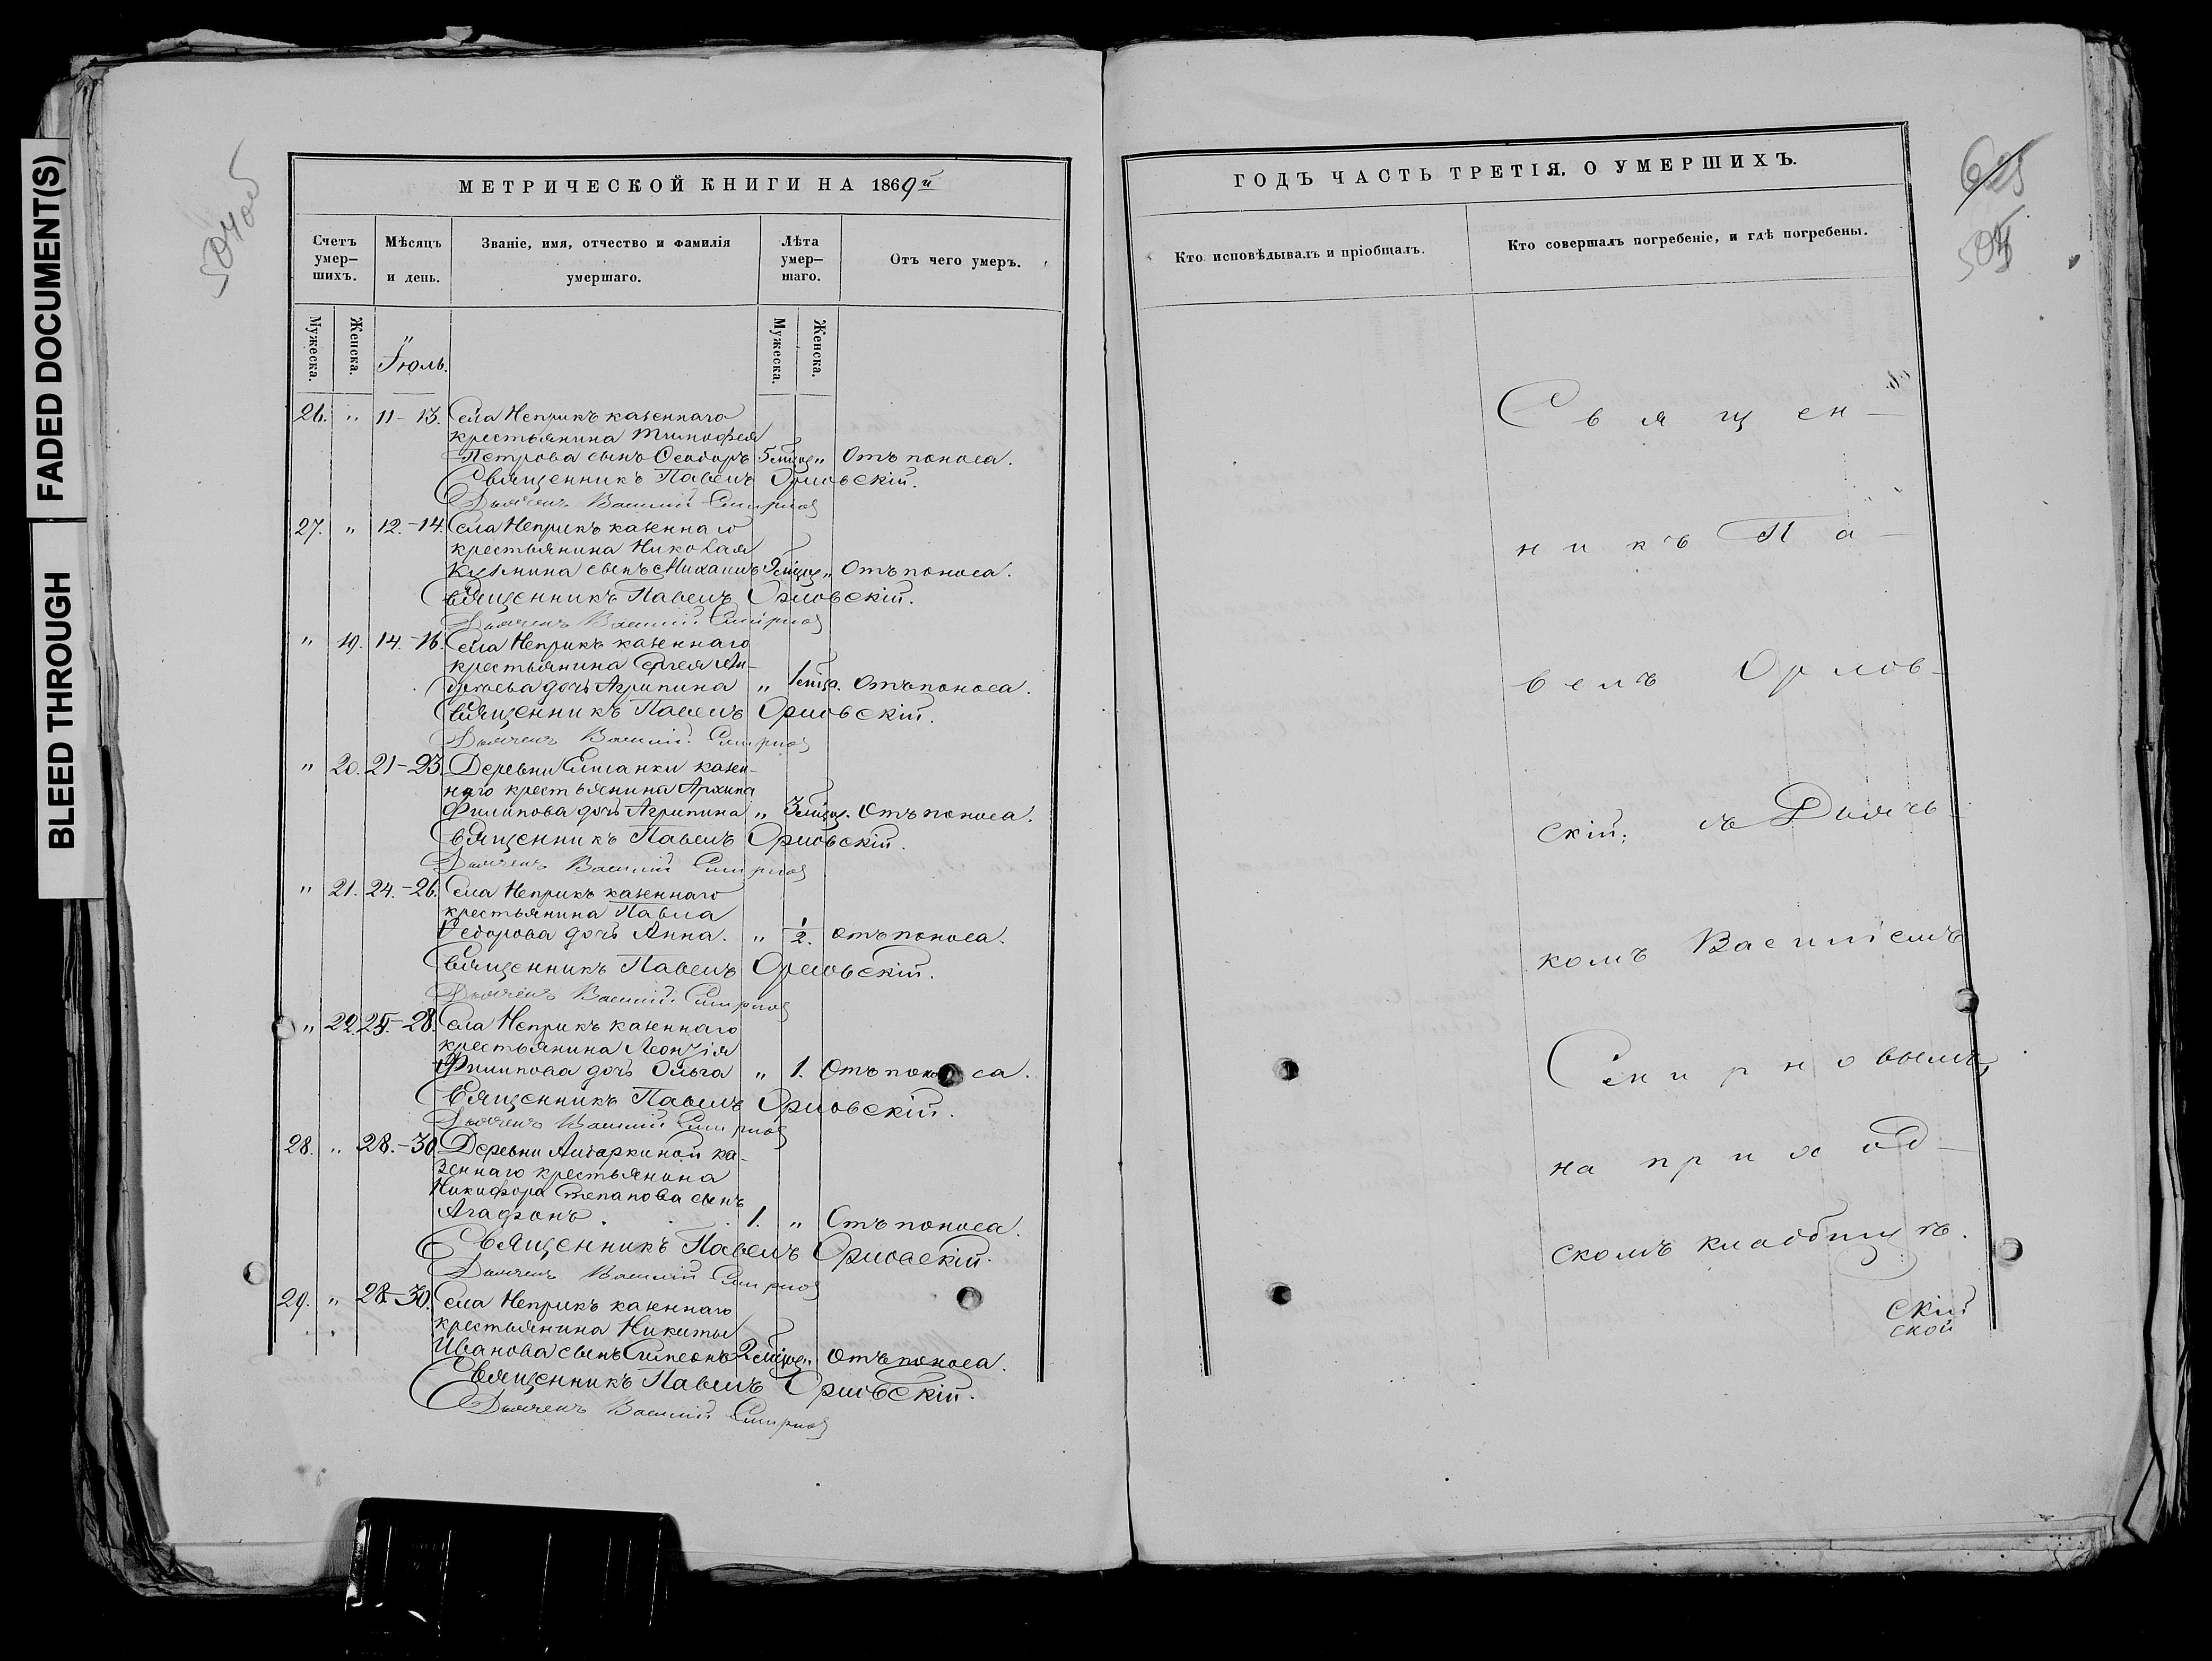 FADED DOCUMENT(S)
BLEED THROUGH
504об
МЕТРИЧЕСКОЙ КНИГИ НА 1869й
Счетъ умер-шихъ.
Мѣсяцъ и день.
Званіе, имя, отчество и фамилія умершаго.
Лѣта умер-шаго.
Отъ чего умеръ.
Мужеска.
Женска.
Іюль.
Мужеска.
Женска.
26. " 11-13. Села Неприкъ казеннаго
крестьянина Тимофея
Петрова сынъ Ѳеодоръ 5 мѣсяц. " Отъ поноса.
Священникъ Павелъ Орловскій.
Дьячекъ Василій Смирнов
27. " 12.-14. Села Неприкъ казеннаго
крестьянина Николая
Кузмина сынъ Михаилъ " Отъ поноса.
Священникъ Павелъ Орловскій.
Дьячекъ Василій Смирнов
" 19. 14.-16. Села Неприкъ казеннаго
крестьянина Сергея
дочь Агрипина " 1 Отъ поноса.
Священникъ Павелъ Орловскій.
Дьячекъ Василій Смирнов
" 20. 21-23. Деревни казен-
наго крестьянина Архипа
Филипова дочь Агрипина " 3 Отъ поноса.
Священникъ Павелъ Орловскій.
Дьячекъ Василій Смирнов
" 21. 24.-26. Села Неприкъ казеннаго
крестьянина Павла
Ѳедорова дочь Анна. " 1/2. Отъ поноса.
Священникъ Павелъ Орловскій.
Дьячекъ Василій Смирнов
" 22. -28. Села Неприкъ казеннаго
крестьянина Леонтія
Филипова дочь Ольга " 1. Отъ поноса.
Священникъ Павелъ Орловскій.
Дьячекъ Василій Смирнов
28. " 28.-30. Деревни ка-
зеннаго крестьянина
Никифора Степанова сынъ
Агафонъ. 1. " Отъ поноса.
Священникъ Павелъ Орловскій.
Дьячекъ Василій Смирнов
29. " 28-30. Села Неприкъ казеннаго
крестьянина Никиты
Иванова сынъ Симеонъ 2 " Отъ поноса.
Священникъ Павелъ Орловскій.
Дьячекъ Василій Смирнов
ГОДЪ ЧАСТЬ ТРЕТІЯ, О УМЕРШИХЪ.
Кто исповѣдывалъ и пріобщалъ.
Кто совершалъ погребеніе, и гдѣ погребены.
Священ-
никъ Па-
велъ Орлов-
скій; съ Дьяч-
комъ Василіемъ
Смирновымъ,
на приход-
скомъ кладбищѣ.
скій
ской